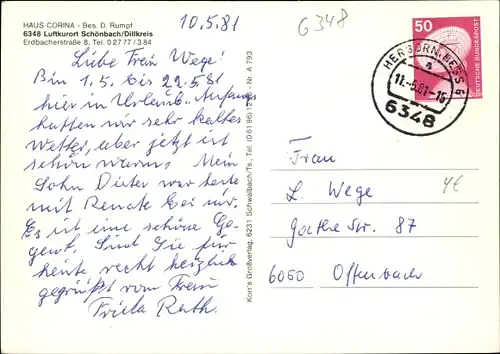 HAUS CORINA - Bes. D. Rumpf
6348 Luftkurort Schönbach/Dillkreis
Erdbacherstraße 8, Tel. 02777/384
10.5.81
6348
50
DEUTSCHE BUNDESPOST
HERBORN, HESS 6
a
11.-5.81-15
6348
Liebe Frau Wege!
Bin 1.5. bis 22.5.81
hier in Urlaub. Anfangs
hatten wir sehr kaltes
Wetter, aber jetzt ist
schön warm. Mein
Sohn Dieter war heute
mit Renate bei mir.
Es ist eine schöne Ge-
gend. Sind Sie für
heute recht herzlich
gegrüßt von Ihrer
Frieda Rath.
Korr's Großverlag, 6231 Schwalbach/Ts., Tel. (06196) Nr. A 793
Frau
L. Wege
4€
Goethe Str. 87
6050 Offenbach